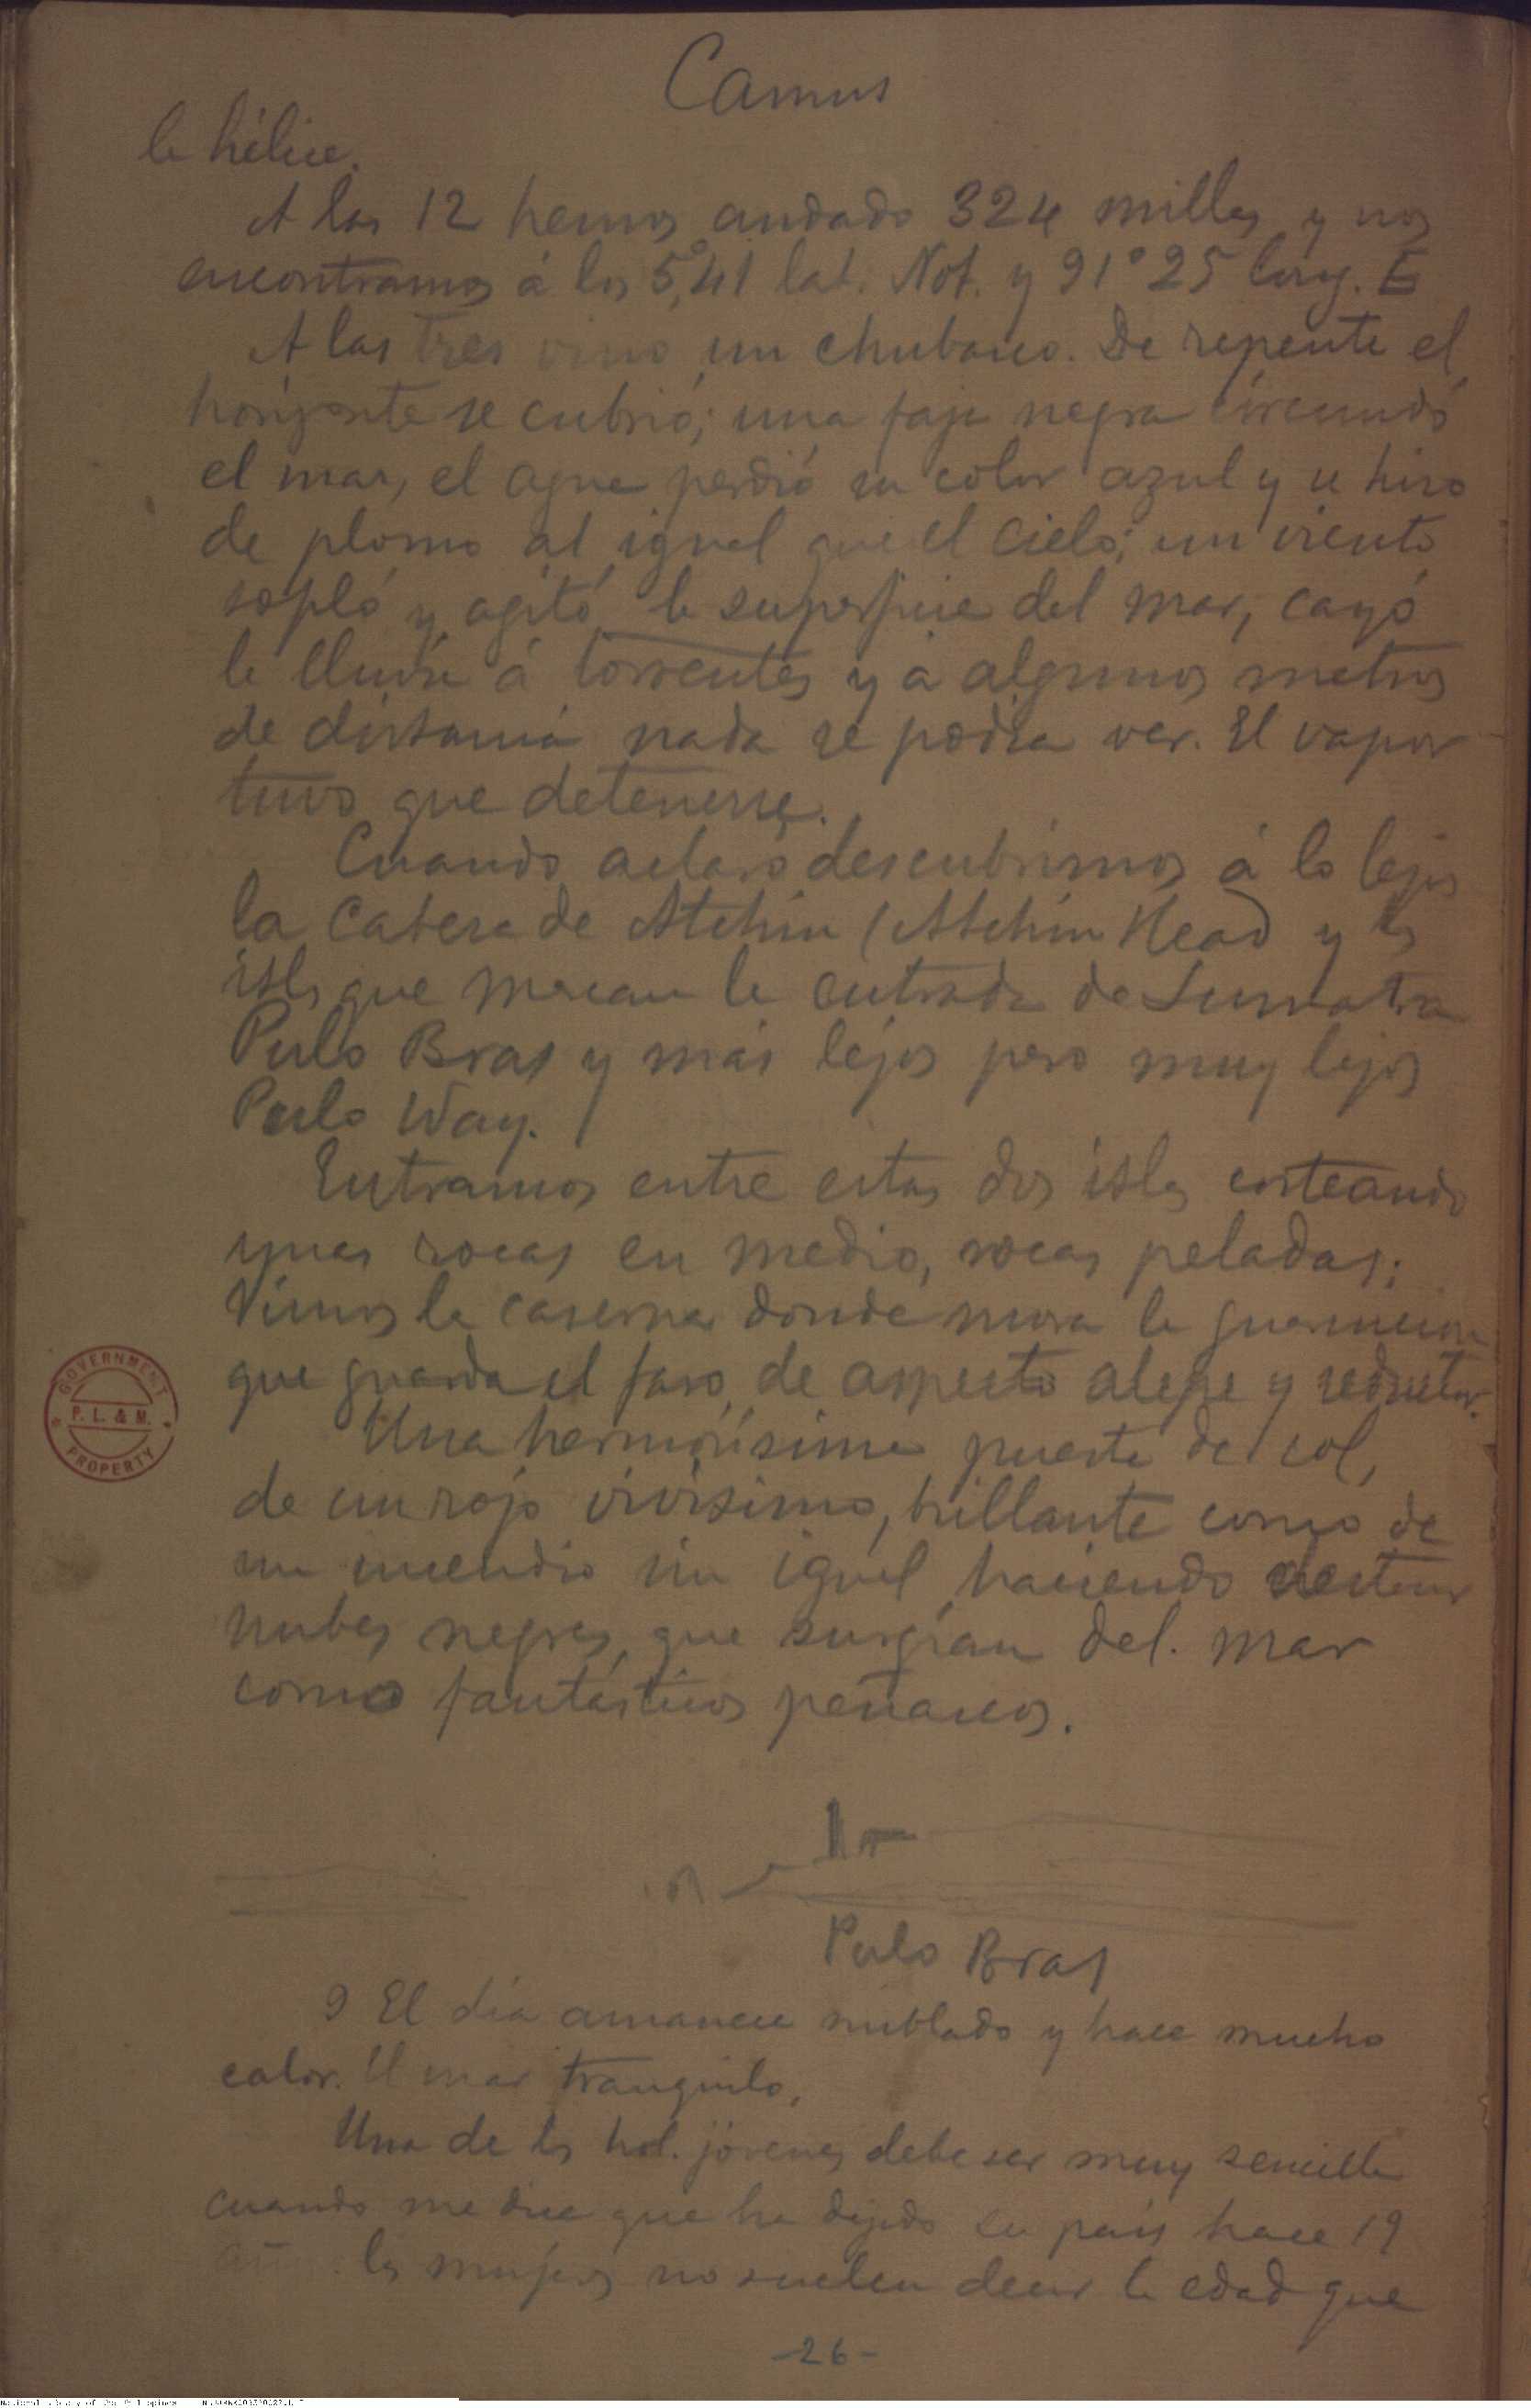 Camus
la hélice.
A las 12 hemos andado 324 millas y nos
encontramos á los 5°,41 lat. Not. y 91° 25 long. E
A las tres vino un chubasco. De repente el
horizonte se cubrió; una faja negra circundó
el mar, el agua perdió su color azul y se hizo
de plomo al igual que el cielo; un viento
sopló y agitó la superficie del mar, cayó
la lluvia á torrentes y á algunos metros
de distancia nada se podia ver. El vapor
tuvo que detenerse.
Cuando aclaró descubrimos á lo lejos
la Cabeza de Atchin (Atchin Head y las
islas que marcan la entrada de Sumatra
Pulo Bras y más lejos pero muy lejos
Pulo Way.
Entramos entre estas dos islas costeando
unas rocas en medio, rocas peladas;
Vimos la caserna donde mora la guarnicion
que guarda el faro, de aspecto alegre y seductor.
Una hermosísima puesta del sol,
de un rojo vivisimo, brillante como de
un incendio sin igual haciendo destacar
nubes negras, que surgian del. mar
como fantásticos peñascos.
Pulo Bras
9 El dia amanece nublado y hace mucho
calor. El mar tranquilo,
Una de las hol. jóvenes debe ser muy sencilla
cuando me dice que ha dejado su pais hace 19
años. las mujeres no suelen decir la edad que
-26-
GOVERNMENT
P. L. & M.
PROPERTY